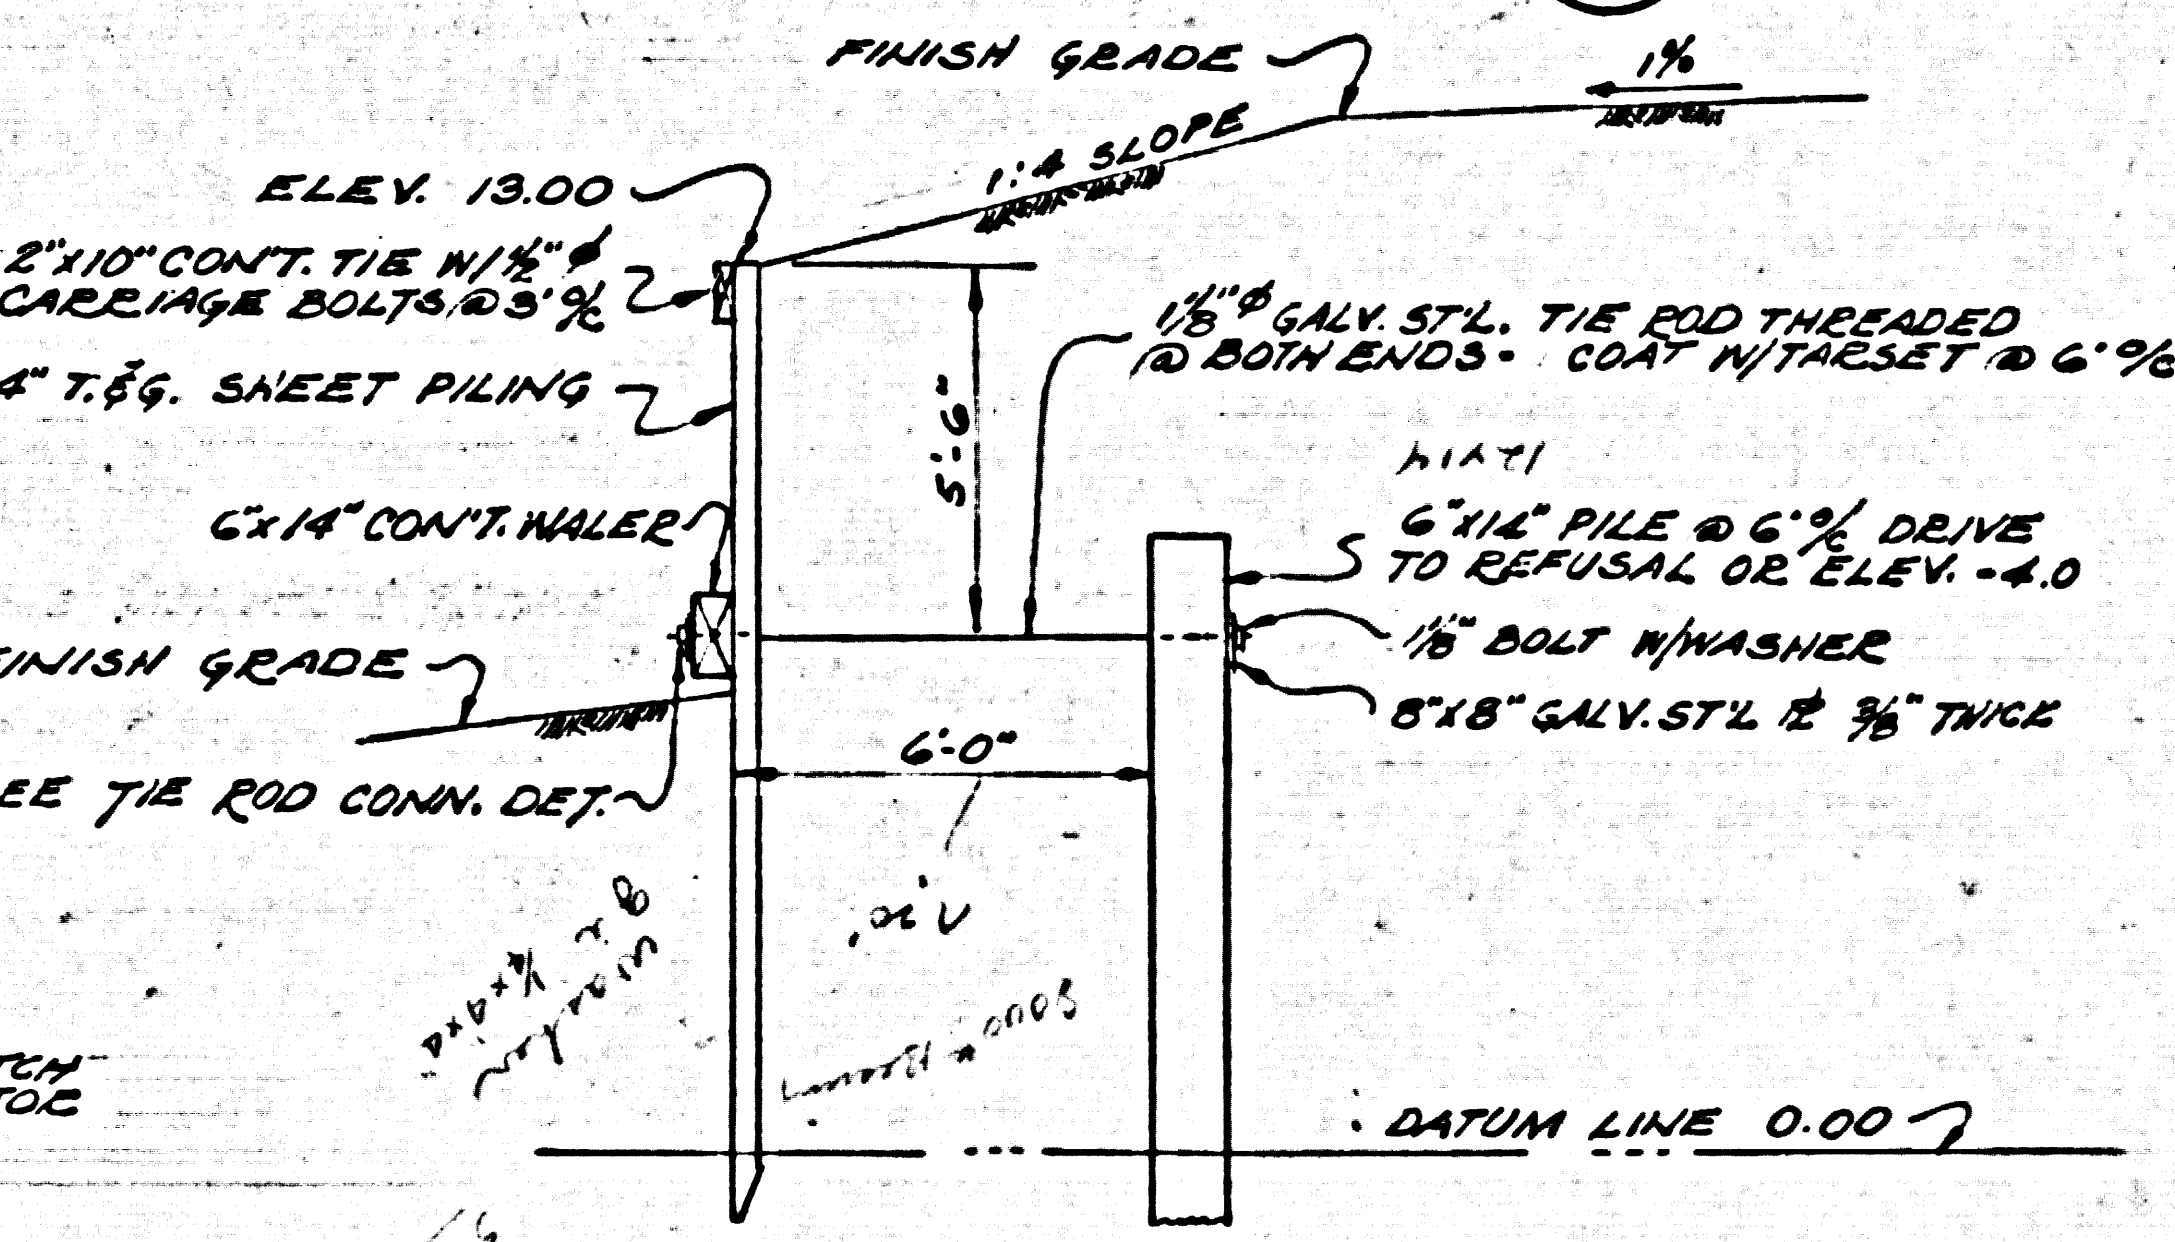 FINISH GRADE
1%
1:4 SLOPE
ELEV. 13.00
2"x10" CON'T. TIE W/ ½" ϕ
CARRIAGE BOLTS @ 3' O/C
4" T.&G. SHEET PILING
5'-6"
1⅛" ϕ GALV. ST'L. TIE ROD THREADED
@ BOTH ENDS - COAT W/TARSET @ 6' O/C
6"x14" CON'T. WALER
6"x14" PILE @ 6' O/C DRIVE
TO REFUSAL OR ELEV. -4.0
1⅛" BOLT W/WASHER
8"x8" GALV. ST'L PL ⅜" THICK
FINISH GRADE
6'-0"
EE TIE ROD CONN. DET.
TCH
TOR
DATUM LINE 0.00